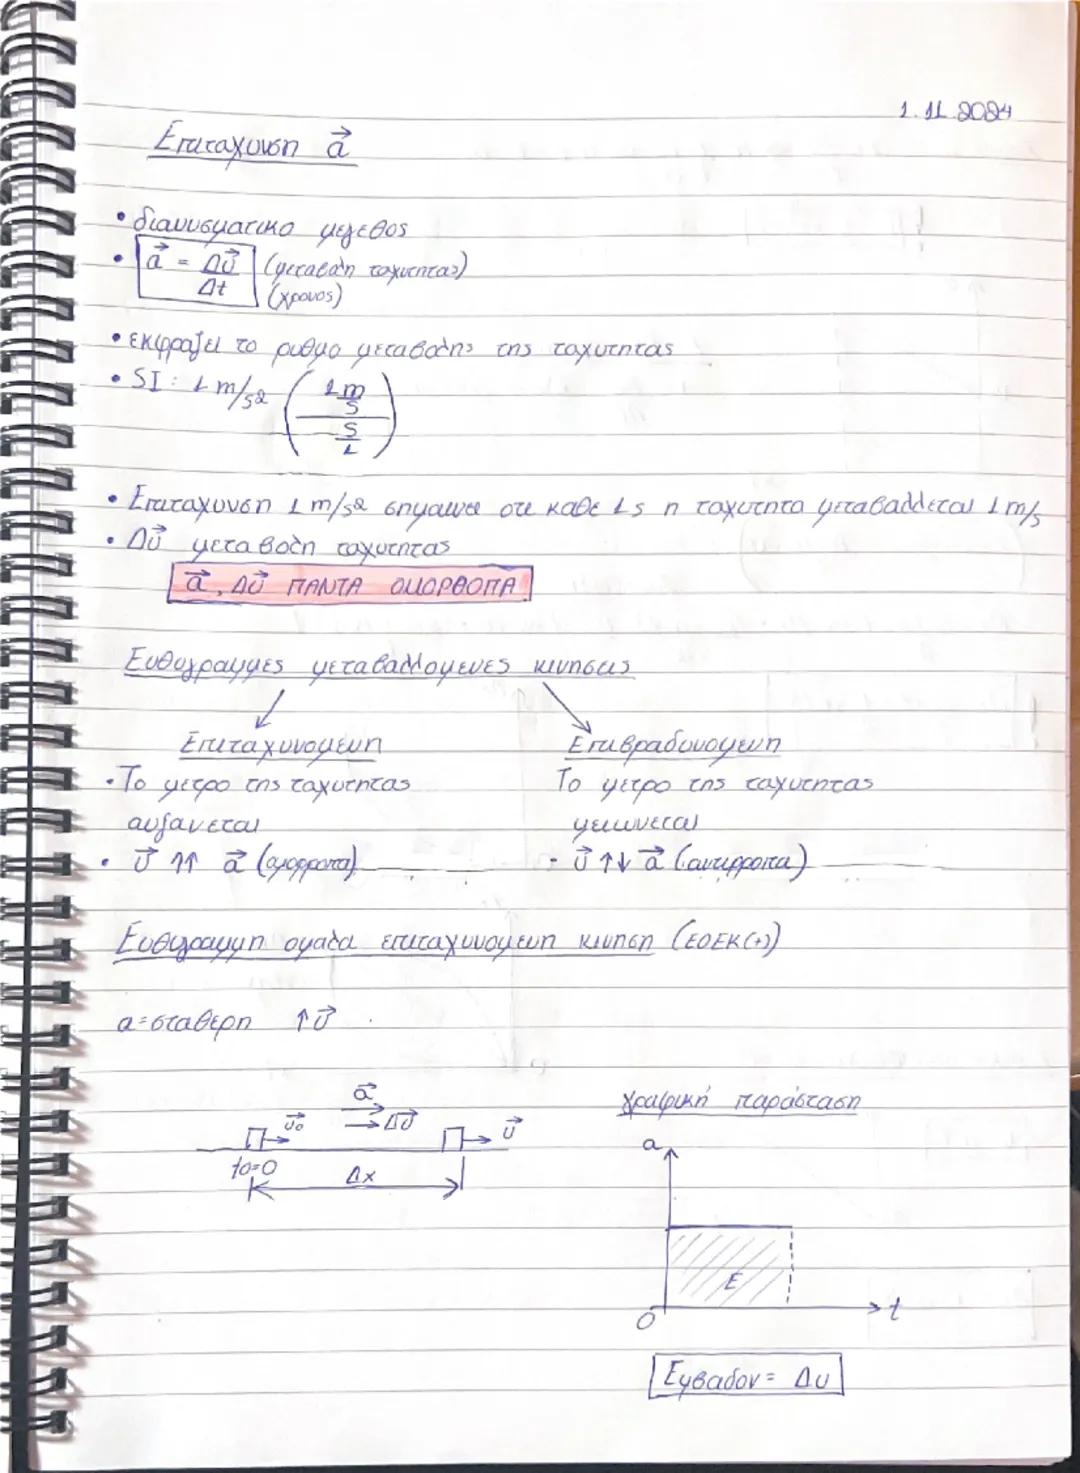 1.11.2024
Επιταχυνση a⃗
• διανυσματικο μεγεθος
• a⃗ = Δυ⃗ (μεταβολη ταχυτητας)
Δt (χρονος)
• εκφραζει το ρυθμο μεταβολης της ταχυτητας
• SI: 1 m/s2 (1m/s / s/1)
• Επιταχυνση 1 m/s2 σημαινει οτι καθε 1s η ταχυτητα μεταβαλλεται 1 m/s
• Δυ⃗ μεταβολη ταχυτητας
a⃗, Δυ⃗ ΠΑΝΤΑ ΟΜΟΡΡΟΠΑ
Ευθυγραμμες μεταβαλλομενες κινησεις
Επιταχυνομενη Επιβραδυνομενη
• Το μετρο της ταχυτητας Το μετρο της ταχυτητας
αυξανεται μειωνεται
• υ⃗ ↑↑ a⃗ (ομορροπα) • υ⃗ ↑↓ a⃗ (αντιρροπα)
Ευθυγραμμη ομαλα επιταχυνομενη κινηση (ΕΟΕΚ(+))
a=σταθερη ↑υ⃗
a⃗
υ⃗₀ Δυ⃗ υ⃗
t0=0 Δx
γραφική παράσταση
a
E
0 t
Εμβαδον = Δυ